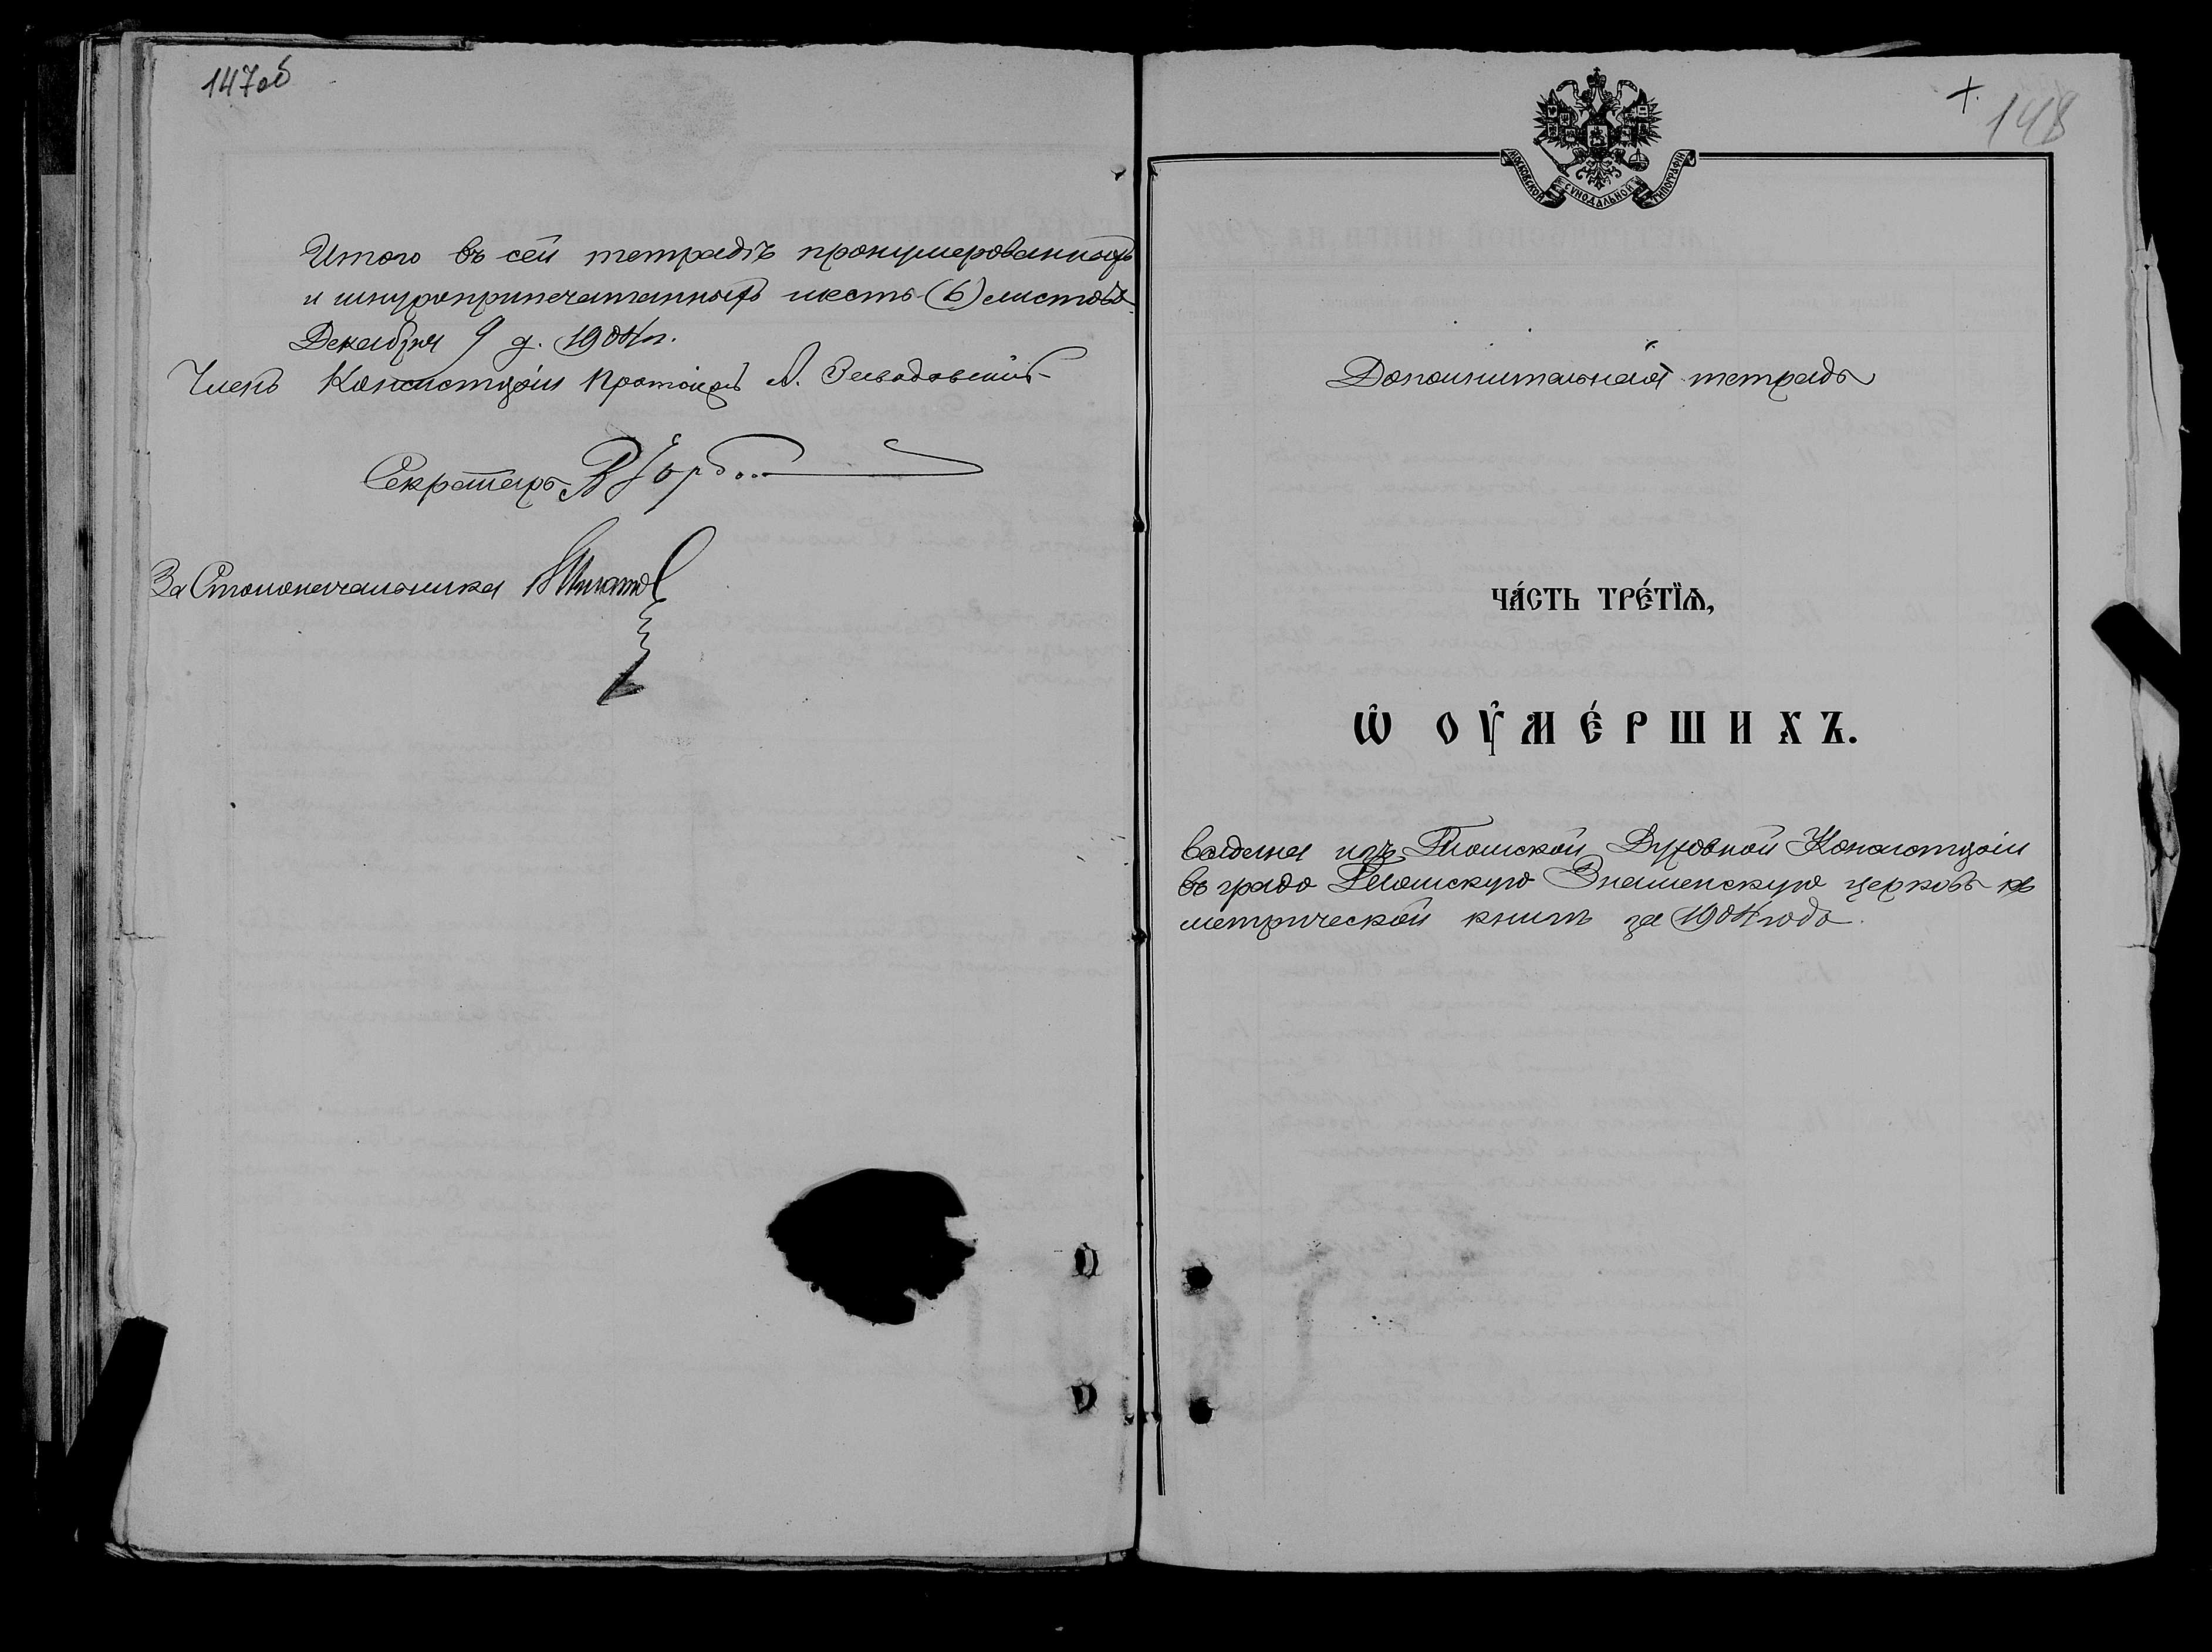 147об
Итого въ сей тетради пронумерованныхъ
и шнуроприпечатанныхъ шесть (6) листовъ
Декабря 9 д. 1904 г.
Членъ Консисторіи Протоіерей А. Заводовскій
Секретарь
За Столоначальника
148
МОСКОВСКОЙ СѴНОДАЛЬНОЙ ТИПОГРАФІИ
Дополнительная тетрадь
ЧА́СТЬ ТРЕ́ТЇѦ,
Ѡ ОУ҆МЕ́РШИХЪ.
выдана изъ Томской Духовной Консисторіи
въ градо Томскую Знаменскую церковь къ
метрической книгѣ за 1904 годъ.